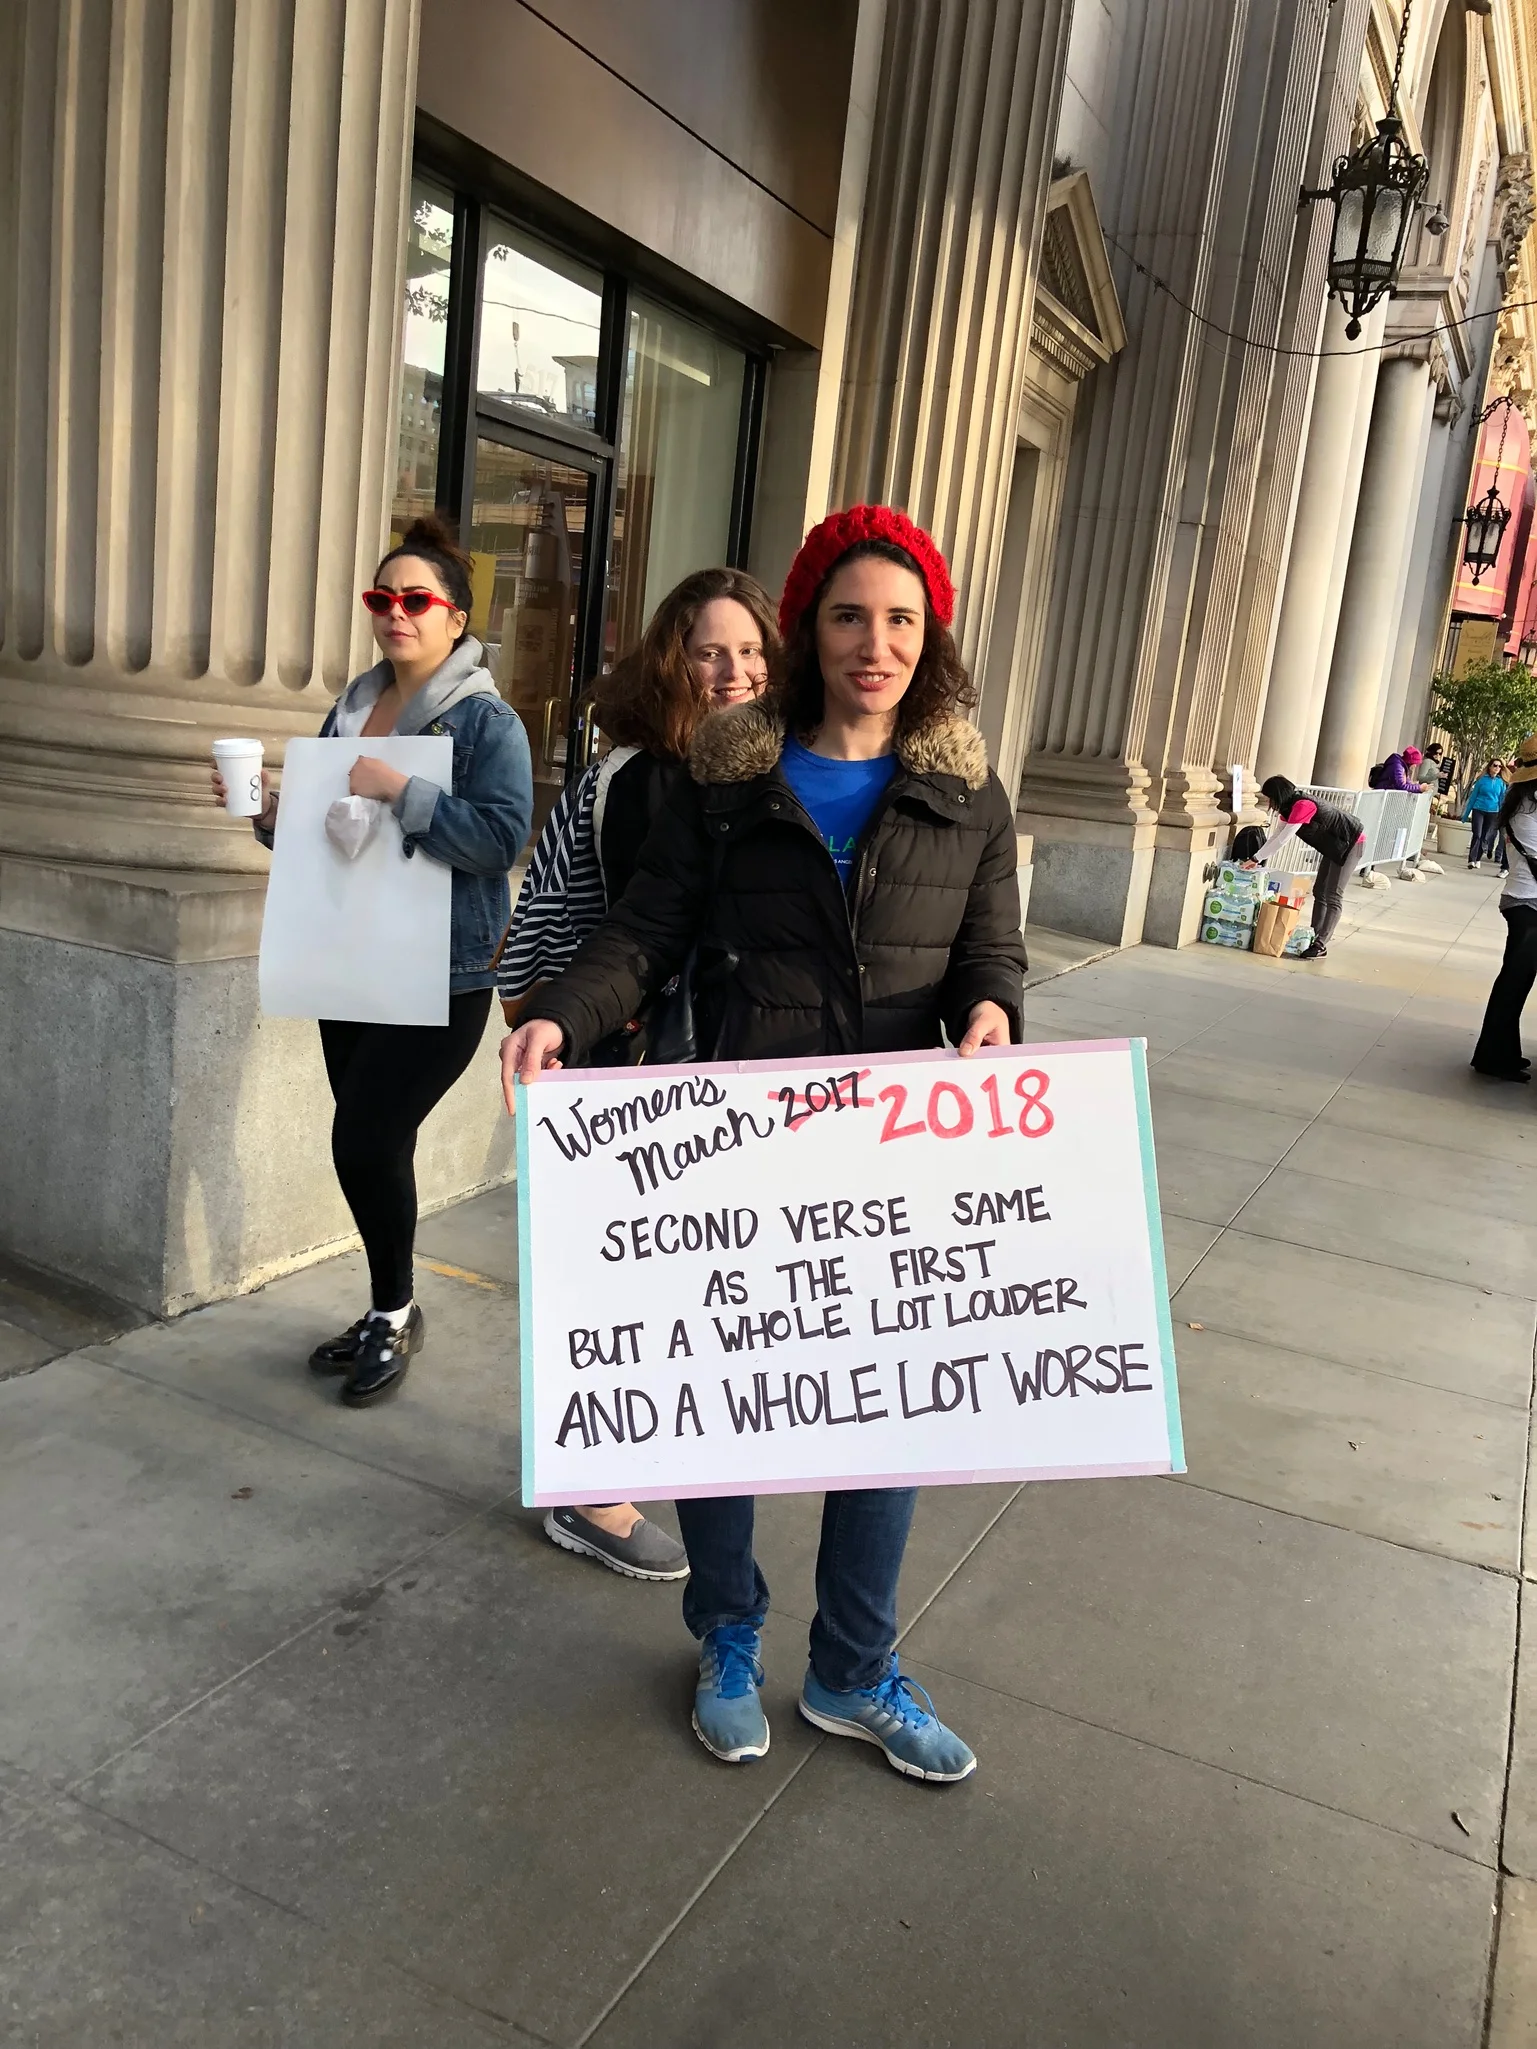 517
8
LA
Women's
March 2017 2018
SECOND VERSE SAME
AS THE FIRST
BUT A WHOLE LOT LOUDER
AND A WHOLE LOT WORSE
S